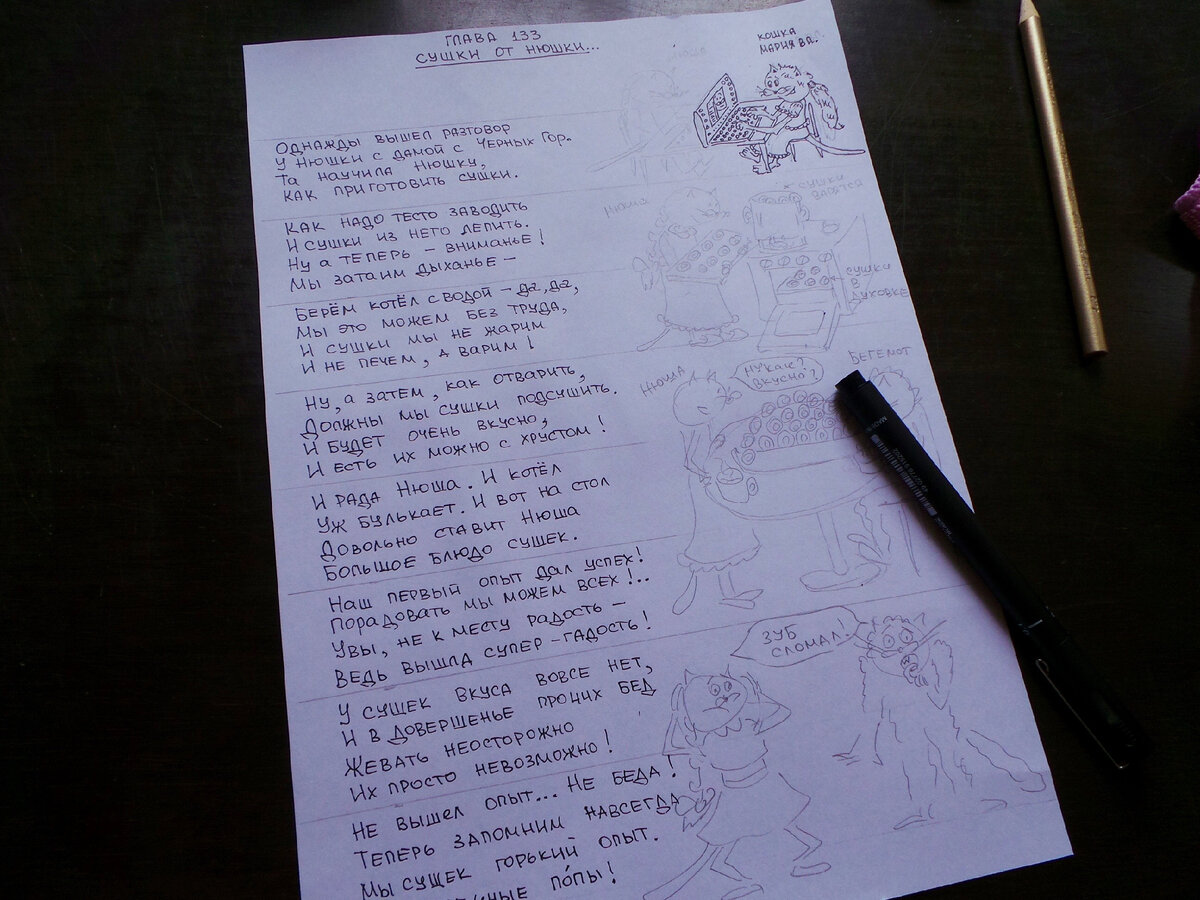 ГЛАВА 133
СУШКИ ОТ НЮШКИ...
КОШКА
МАРИЯ ВА.
НЮША
ОДНАЖДЫ ВЫШЕЛ РАЗГОВОР
У НЮШКИ С ДАМОЙ С ЧЕРНЫХ ГОР.
ТА НАУЧИЛА НЮШКУ,
КАК ПРИГОТОВИТЬ СУШКИ.
КАК НАДО ТЕСТО ЗАВОДИТЬ
И СУШКИ ИЗ НЕГО ЛЕПИТЬ.
НУ А ТЕПЕРЬ – ВНИМАНЬЕ!
МЫ ЗАТАИМ ДЫХАНЬЕ –
НЮША
СУШКИ
ВАРЯТСЯ
СУШКИ
В
ДУХОВКЕ
БЕРЁМ КОТЁЛ С ВОДОЙ – ДА, ДА,
МЫ ЭТО МОЖЕМ БЕЗ ТРУДА,
И СУШКИ МЫ НЕ ЖАРИМ
И НЕ ПЕЧЕМ, А ВАРИМ!
НУ, А ЗАТЕМ, КАК ОТВАРИТЬ,
ДОЛЖНЫ МЫ СУШКИ ПОДСУШИТЬ.
И БУДЕТ ОЧЕНЬ ВКУСНО,
И ЕСТЬ ИХ МОЖНО С ХРУСТОМ!
НЮША
НУ КАК?
ВКУСНО?
БЕГЕМОТ
И РАДА НЮША. И КОТЁЛ
УЖ БУЛЬКАЕТ. И ВОТ НА СТОЛ
ДОВОЛЬНО СТАВИТ НЮША
БОЛЬШОЕ БЛЮДО СУШЕК.
НАШ ПЕРВЫЙ ОПЫТ ДАЛ УСПЕХ!
ПОРАДОВАТЬ МЫ МОЖЕМ ВСЕХ!..
УВЫ, НЕ К МЕСТУ РАДОСТЬ –
ВЕДЬ ВЫШЛА СУПЕР-ГАДОСТЬ!
У СУШЕК ВКУСА ВОВСЕ НЕТ,
И В ДОВЕРШЕНЬЕ ПРОЧИХ БЕД
ЖЕВАТЬ НЕОСТОРОЖНО
ИХ ПРОСТО НЕВОЗМОЖНО!
ЗУБ
СЛОМАЛ!
НЕ ВЫШЕЛ ОПЫТ... НЕ БЕДА!
ТЕПЕРЬ ЗАПОМНИМ НАВСЕГДА
МЫ СУШЕК ГОРЬКИЙ ОПЫТ.
ПО́ПЫ!